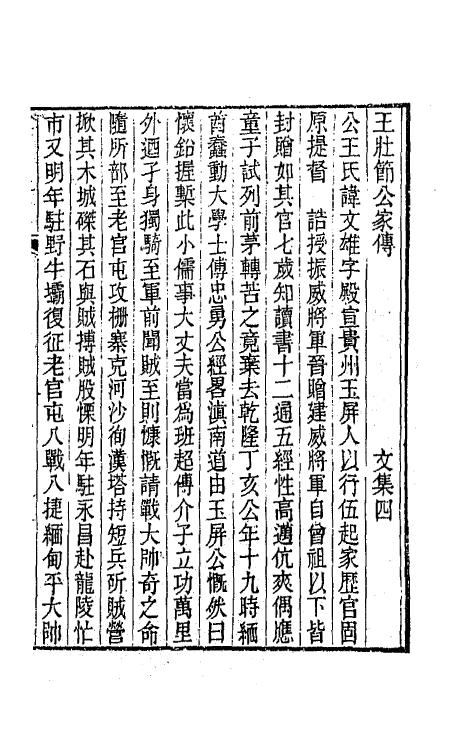 王壯節公家傳　文集四
公王氏諱文雄字殿宣貴州玉屏人以行伍起家歷官固
原提督　誥授振威將軍晉贈建威將軍自曾祖以下皆
封贈如其官七歲知讀書十二通五經性高邁伉爽偶應
童子試列前茅轉苦之竟棄去乾隆丁亥公年十九時緬
酋蠢動大學士傅忠勇公經畧滇南道由玉屏公慨然曰
懷鉛握槧此小儒事大丈夫當爲班超傅介子立功萬里
外迺孑身獨騎至軍前聞賊至則慷慨請戰大帥奇之命
隨所部至老官屯攻柵寨克河沙徇漢塔持短兵斫賊營
掀其木城磔其石與賊搏賊股慄明年駐永昌赴龍陵忙
市又明年駐野牛壩復征老官屯八戰八捷緬甸平大帥